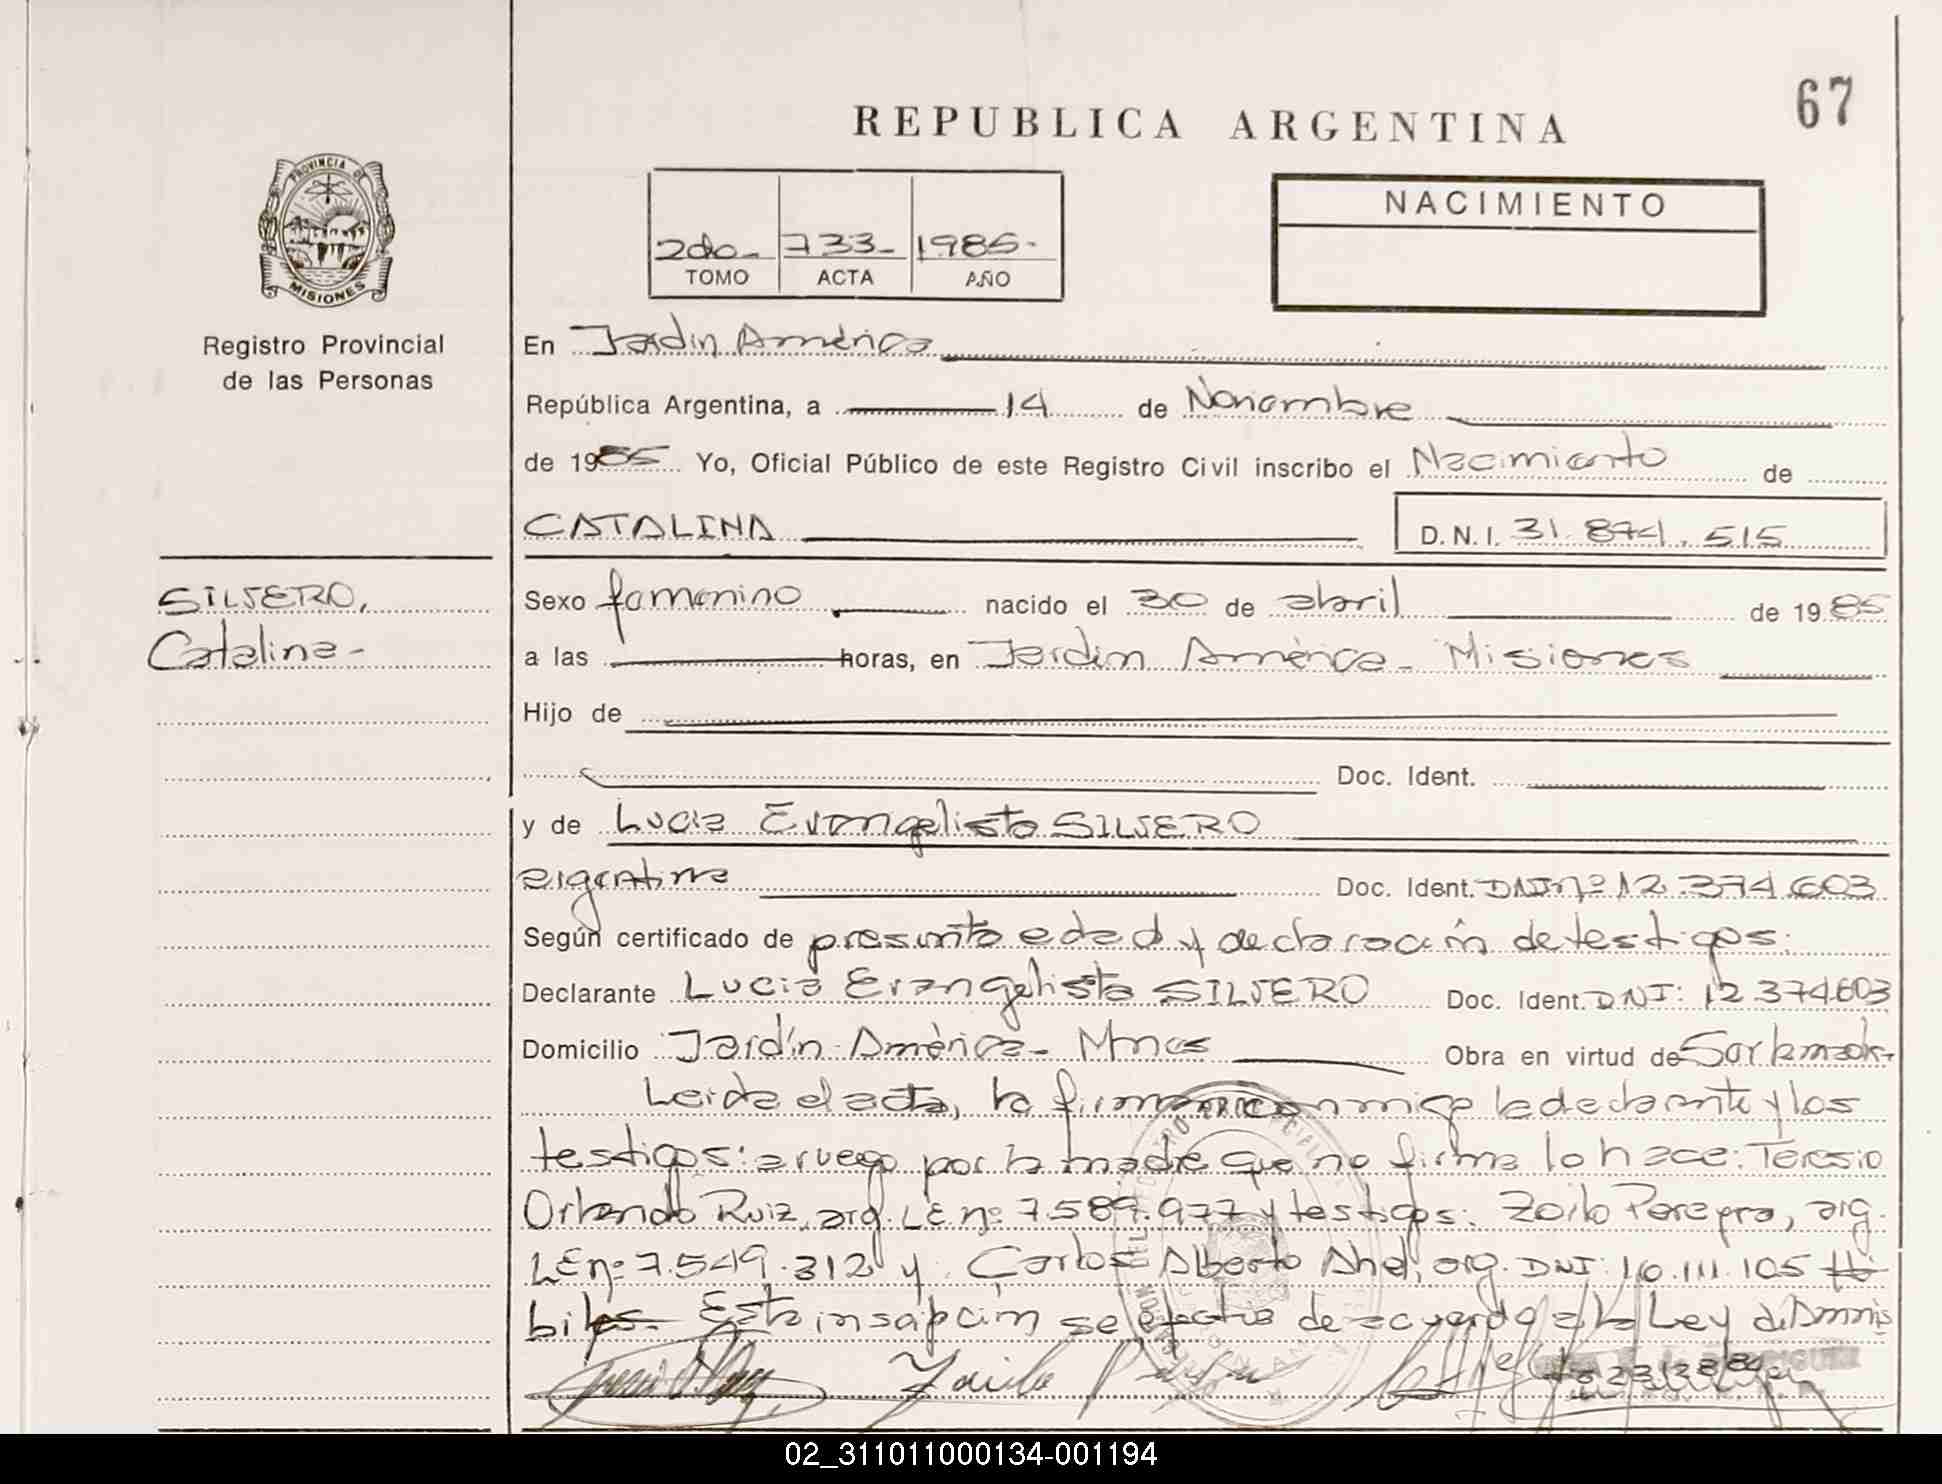 67
REPUBLICA ARGENTINA
PROVINCIA DE
MISIONES
Registro Provincial
de las Personas
2do- 733- 1985-
TOMO ACTA AÑO
NACIMIENTO
En Jardin América
República Argentina, a 14 de Noviembre
de 1985 Yo, Oficial Público de este Registro Civil inscribo el Nacimiento de
CATALINA D.N.I. 31.874.515
SILVERO,
Catalina-
Sexo femenino nacido el 30 de abril de 1985
a las horas, en Jardin América- Misiones
Hijo de
Doc. Ident.
y de Lucia Evangelista SILVERO
argentina Doc. Ident. DNI nº 12.374.603
Según certificado de presunta edad y declaración de testigos.
Declarante Lucia Evangelista SILVERO Doc. Ident. DNI: 12.374.603
Domicilio Jardín América- Mnes Obra en virtud de
Leida el acta, la firman conmigo la declarante y los
testigos: a ruego por la madre que no firma lo hace: Teresio
Orlando Ruiz, arg. LE nº 7.589.977 y testigos: Zoilo Pereyra, arg.
LE nº 7.549.312 y Carlos Alberto Ahel, arg. DNI: 10.111.105
Esta inscripción se efectua de acuerdo a la Ley de
02_311011000134-001194